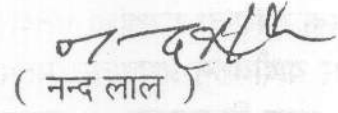 ( नन्द लाल )